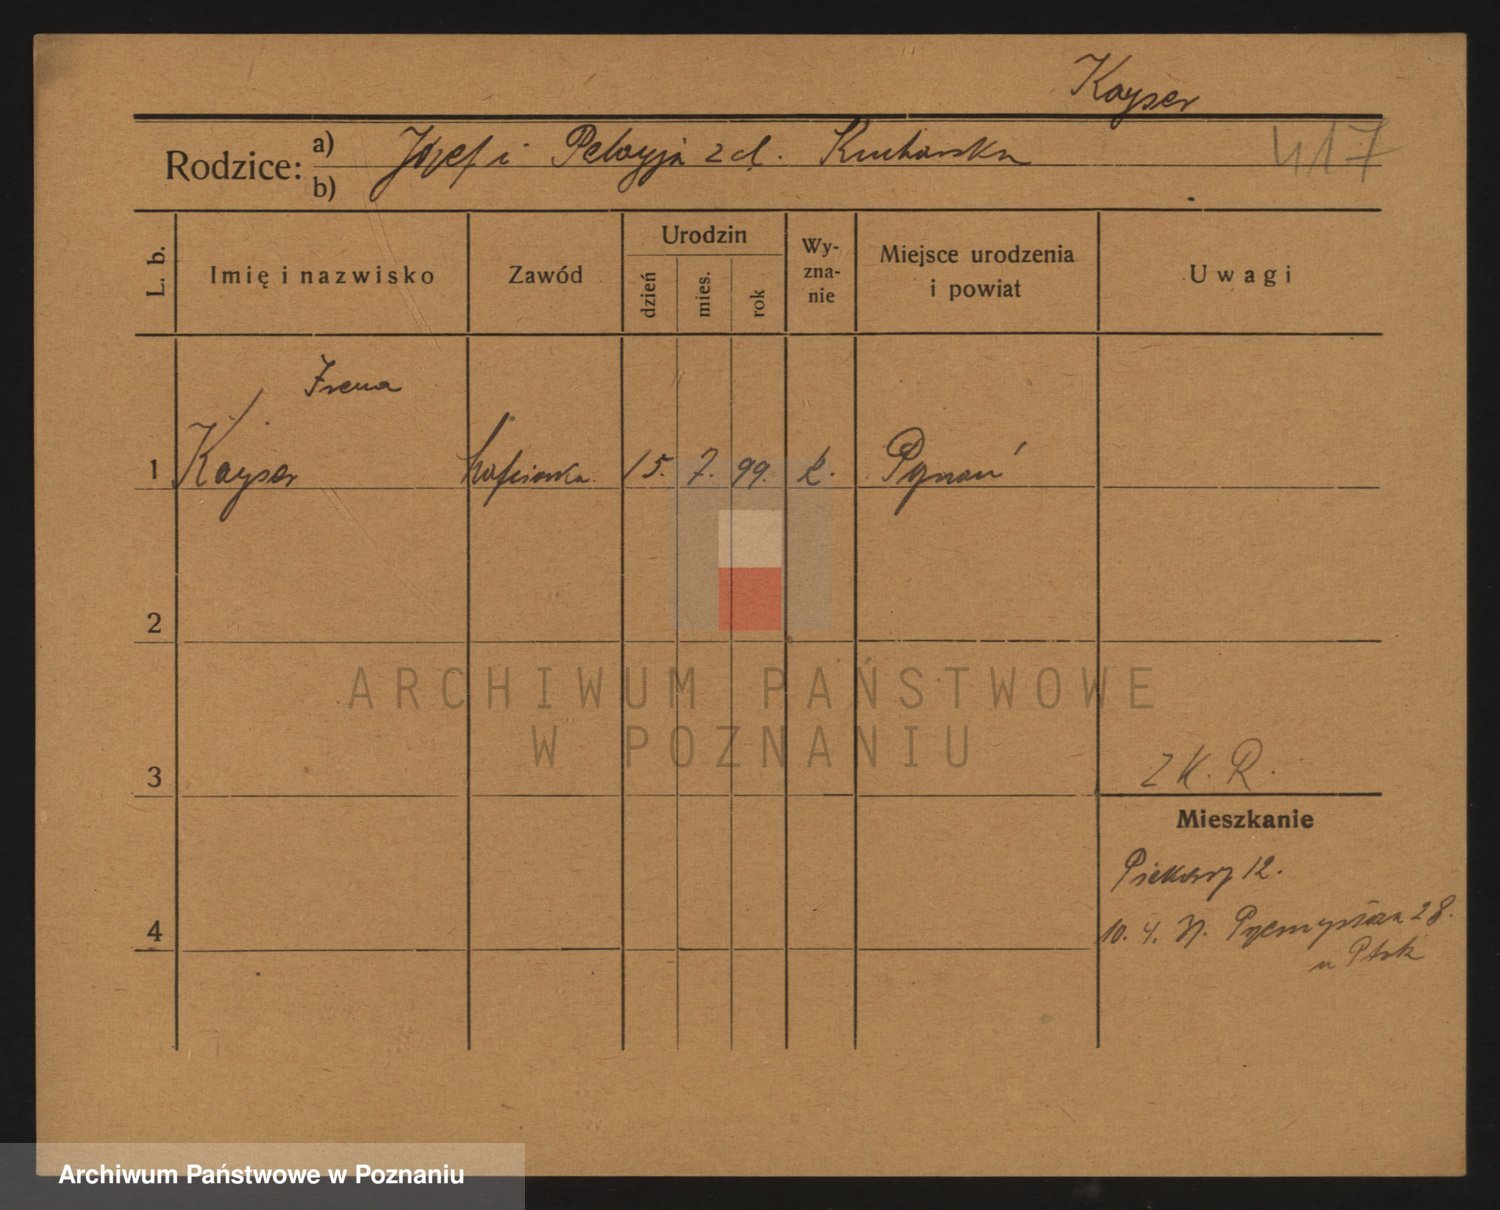 Kayser
Rodzice: a) Józef i Pelagja z d. Kucharska 417
b)
L. b. Imię i nazwisko Zawód Urodzin dzień mies. rok Wy-zna-nie Miejsce urodzenia i powiat Uwagi
Irena
1 Kayser hafciarka. 15. 7. 99. k. Poznań
2
ARCHIWUM PAŃSTWOWE
W POZNANIU
3 Z K. R.
Mieszkanie
Piekary 12.
4 10. 4. Przemysława 28.
u Ptak
Archiwum Państwowe w Poznaniu